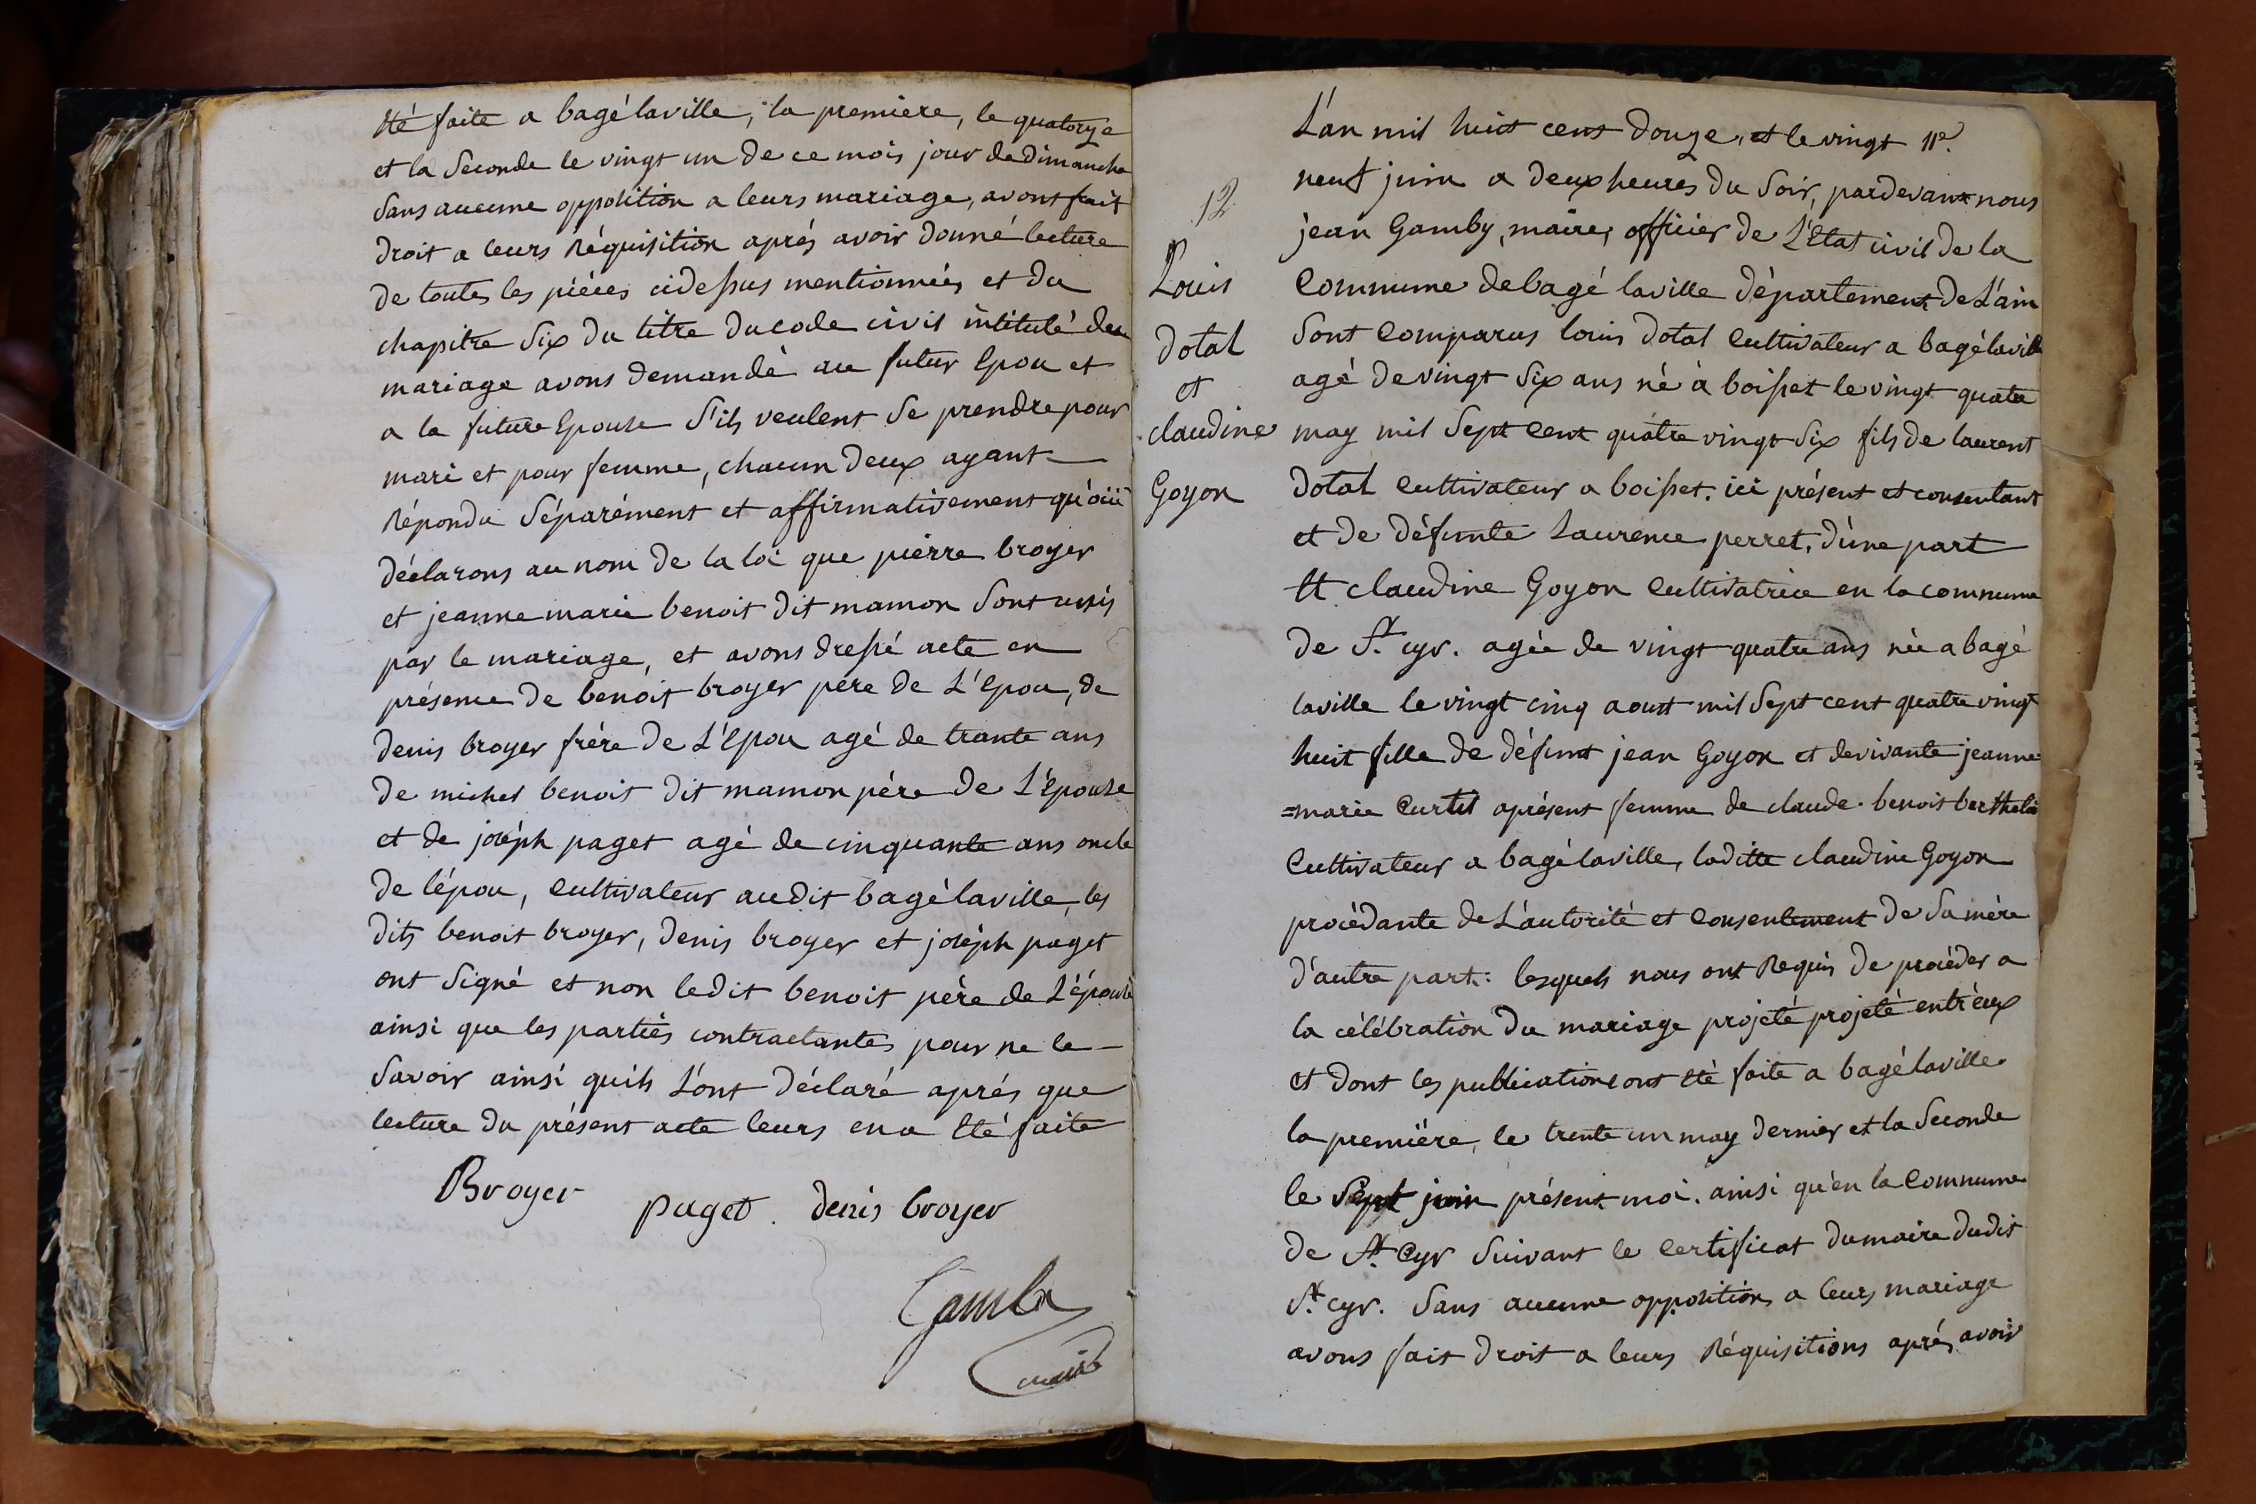 été faite a bagélaville, la premiere, le quatorze
et la Seconde le vingt un de ce mois jour de Dimanche
Sans aucune opposition a leurs mariage, avons fait
droit a leurs Réquisition aprés avoir donné lecture
de toutes les piéces cidessus mentionnées et du
chapitre Six du titre du code civil intitulé du
mariage avons demandé au futur Epou et
a la future Epouse S'ils veulent Se prendre pour
mari et pour femme, chacun deux ayant
Répondu Séparément et affirmativement qu'oüi
déclarons au nom de la loi que pierre broyer
et jeanne marie benoit dit mamon Sont unis
par le mariage, et avons dressé acte en
présence de benoit broyer pere de L'Epou, de
denis broyer frére de L'Epou agé de trante ans
de michel benoit dit mamon pére de L'Epouse
et de joséph paget agé de cinquante ans oncle
de lépou, Cultivateur audit bagélaville, les
dits benoit broyer, denis broyer et joséph paget
ont Signé et non ledit benoit pére de L'épouse
ainsi que les parties contractantes pour ne le
Savoir ainsi quils L'ont déclaré aprés que
lecture du présent acte leurs en a Eté faite
Broyer paget. denis broyer
Gambÿ
maire
L'an mil huit cent douze, et le vingt 11e.
neuf juin a deux heures du Soir, pardevant nous
jean Gamby, maire, officier de L'Etat civil de la
Commune de bagé laville département de L'ain
Sont Comparus louis dotal Cultivateur a bagélaville
agé de vingt Six ans né à boisset le vingt quatre
may mil Sept Cent quatre vingt Six fils de laurent
dotal Cultivateur a boisset. ici présent et consentant
et de défunte Laurence perret, d'une part
Et claudine Goyon Cultivatrice en la commune
de St. cyr. agée de vingt quatre ans née a bagé
laville le vingt cinq aoust mil Sept cent quatre vingt
huit fille de défunt jean Goyon et de vivante jeanne
=marie Curtil aprésent femme de claude benoit berthelé
Cultivateur a bagélaville, laditte claudine Goyon
procédante de L'autorité et Consentement de Sa mére
d'autre part: lesquels nous ont Requis de procéder a
la célébration du mariage projeté projeté entr'eux
et dont les publications ont été faite a bagélaville
la premiére, le trente un may dernier et la Seconde
le Sept juin présent moi. ainsi qu'en la Commune
de St. Cyr Suivant le Certificat du maire dudit
St. cyr. Sans aucune opposition a leurs mariage
avons fait droit a leurs Réquisitions aprés avoir
12
Louis
dotal
et
claudine
Goyon